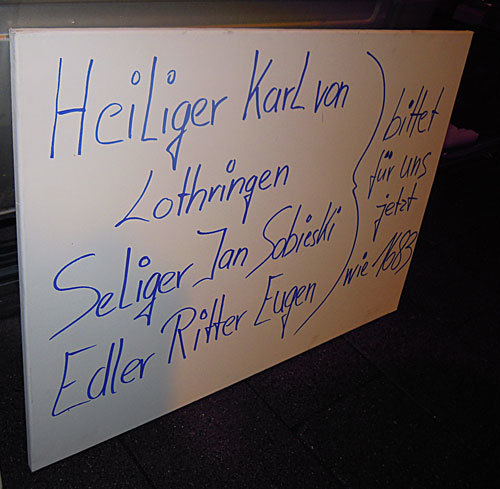 Heiliger Karl von
Lothringen
Seliger Jan Sobieski
Edler Ritter Eugen
bittet
für uns
jetzt
wie 1683